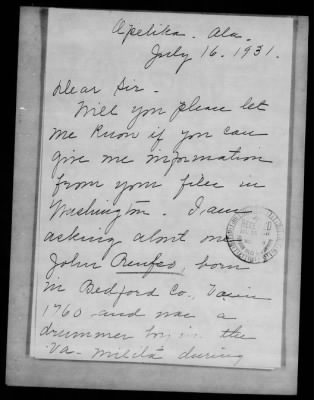 Opelika. Ala.
July 16. 1931.
Dear Sir -
Will you please let
me know if you can
give me information
from your files in
Washington. I am
asking about one
John Renfro, born
in Bedford Co., Va in
1760 and was a
drummer boy in the
Va. Militia during